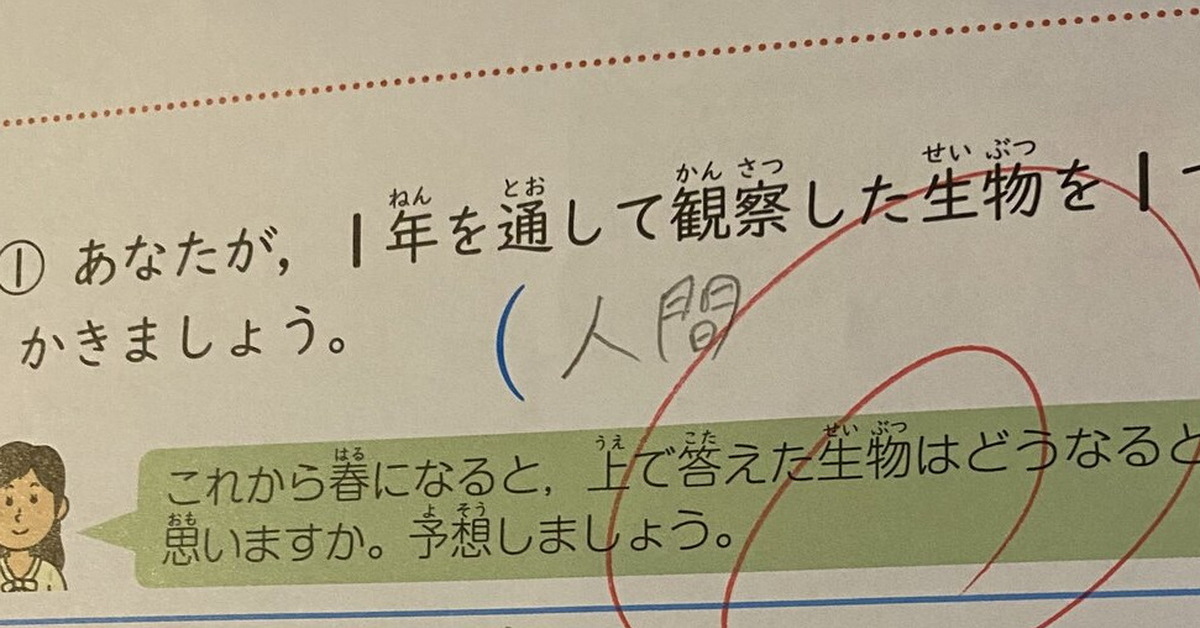 ① あなたが，1年を通して観察した生物を1
かきましょう。
(人間
これから春になると，上で答えた生物はどうなると
思いますか。予想しましょう。